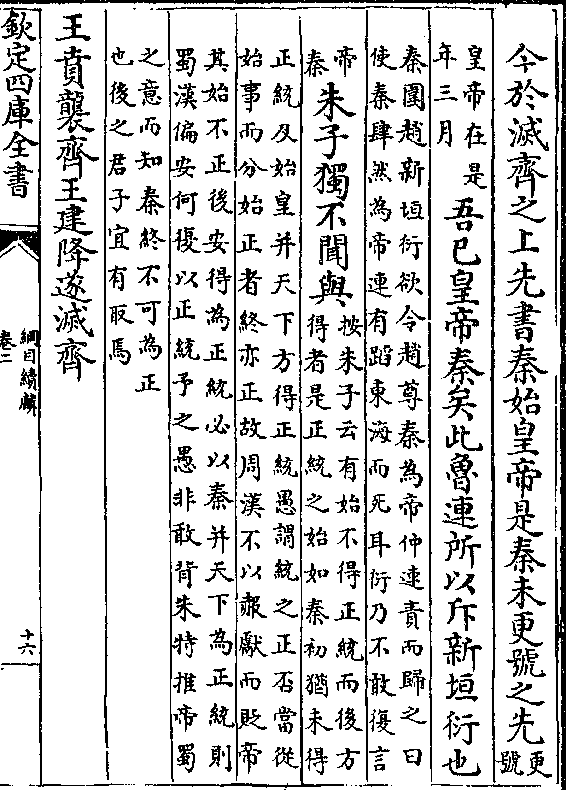 今於滅齊之上先書秦始皇帝是秦未更號之先更號
皇帝在是年三月吾已皇帝秦矣此魯連所以斥新垣衍也
秦圍趙新垣衍欲令趙尊秦為帝仲連責而歸之曰
使秦肆然為帝連有蹈東海而死耳衍乃不敢復言
帝秦朱子獨不聞與按朱子云有始不得正統而後方
得者是正統之始如秦初猶未得
正統及始皇并天下方得正統愚謂統之正否當從
始事而分始正者終亦正故周漢不以赧獻而貶帝
其始不正後安得為正統必以秦并天下為正統則
蜀漢偏安何復以正統予之愚非敢背朱特推帝蜀
之意而知秦終不可為正
也後之君子宜有取焉
王賁襲齊王建降遂滅齊
欽定四庫全書
綱目續麟
卷二
十六